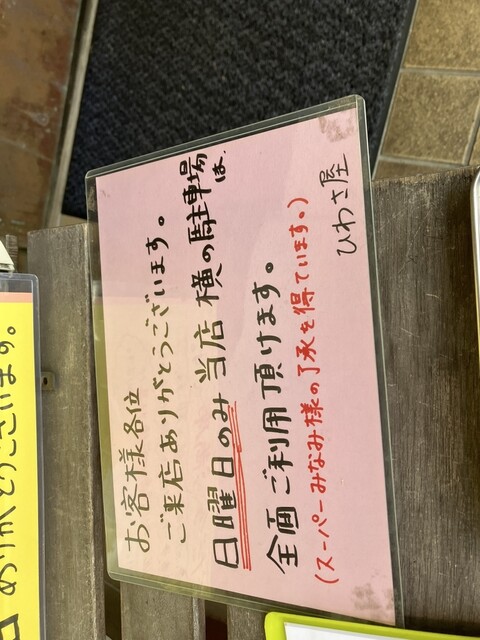 お客様各位
ご来店ありがとうございます。
日曜日のみ当店横の駐車場は、
全面ご利用頂けます。
(スーパーみなみ様の了承を得ています。)
ひわさ屋
ありがとうございます。